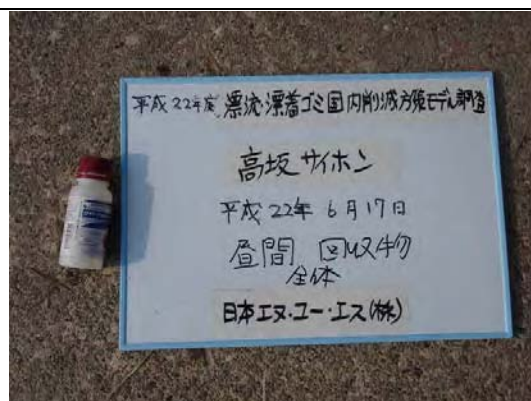 平成22年度 漂流・漂着ゴミ国内削減方策モデル調査
高坂サイホン
平成22年 6月17日
昼間 回収物
全体
日本エヌ・ユー・エス(株)